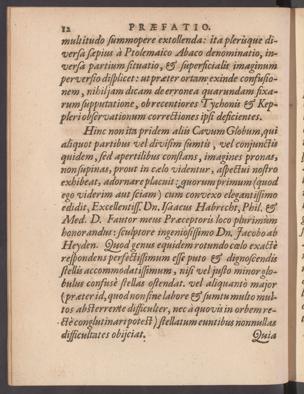 12 PRÆFATIO.
multitudo summopere extollenda: ita plerisque di-
versa sæpius à Ptolemaico Abaco denominatio, in-
versa partium situatio, & superficialis imaginum
perversio displicet: ut præter ortam exinde confusio-
nem, nihil jam dicam de erronea quarundam fixa-
rum supputatione, ob recentiores Tychonis & Kep-
pleri observationum correctiones ipsi deficientes.
Hinc non ita pridem aliis Cavum Globum, qui
aliquot partibus vel divisim sumtis, vel conjunctis
quidem, sed apertilibus constans, imagines pronas,
non supinas, prout in cælo videntur, aspectui nostro
exhibeat, adornare placuit: quorum primum (quod
ego viderim aut sciam) cum convexo elegantissimo
edidit, Excellentiss. Dn. Isaacus Habrecht, Phil. &
Med. D. Fautor meus Præceptoris loco plurimùm
honorandus: sculptore ingeniosissimo Dn. Jacobo ab
Heyden. Quod genus equidem rotundo cœlo exactè
respondens perfectissimum esse puto & dignoscendis
stellis accommodatissimum, nisi vel justo minor glo-
bulus confusè stellas ostendat. vel aliquantò major
(præter id, quod non sine labore & sumtu multo mul-
tos absterrente difficulter, nec à quovis in orbem re-
ctè conglutinari potest) stellatum euntibus nonnullas
difficultates objiciat.
Quia